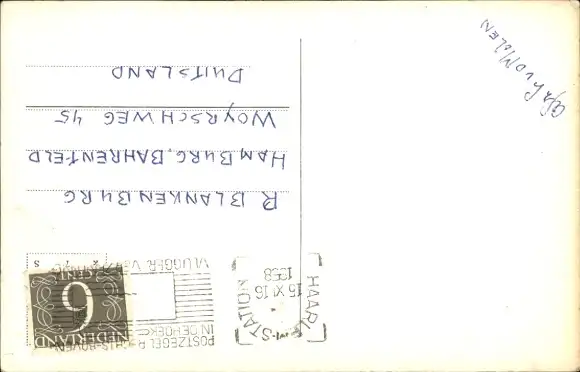 R BLANKENBURG
HAMBURG, BAHRENFELD
WOYRSCHWEG 45
DUITSLAND
NEDERLAND
6
CENT
POSTZEGEL RECHTS-BOVEN
IN DE HOEK
VLUGGER
HAARLEM-STATION
15 XI 16
1958